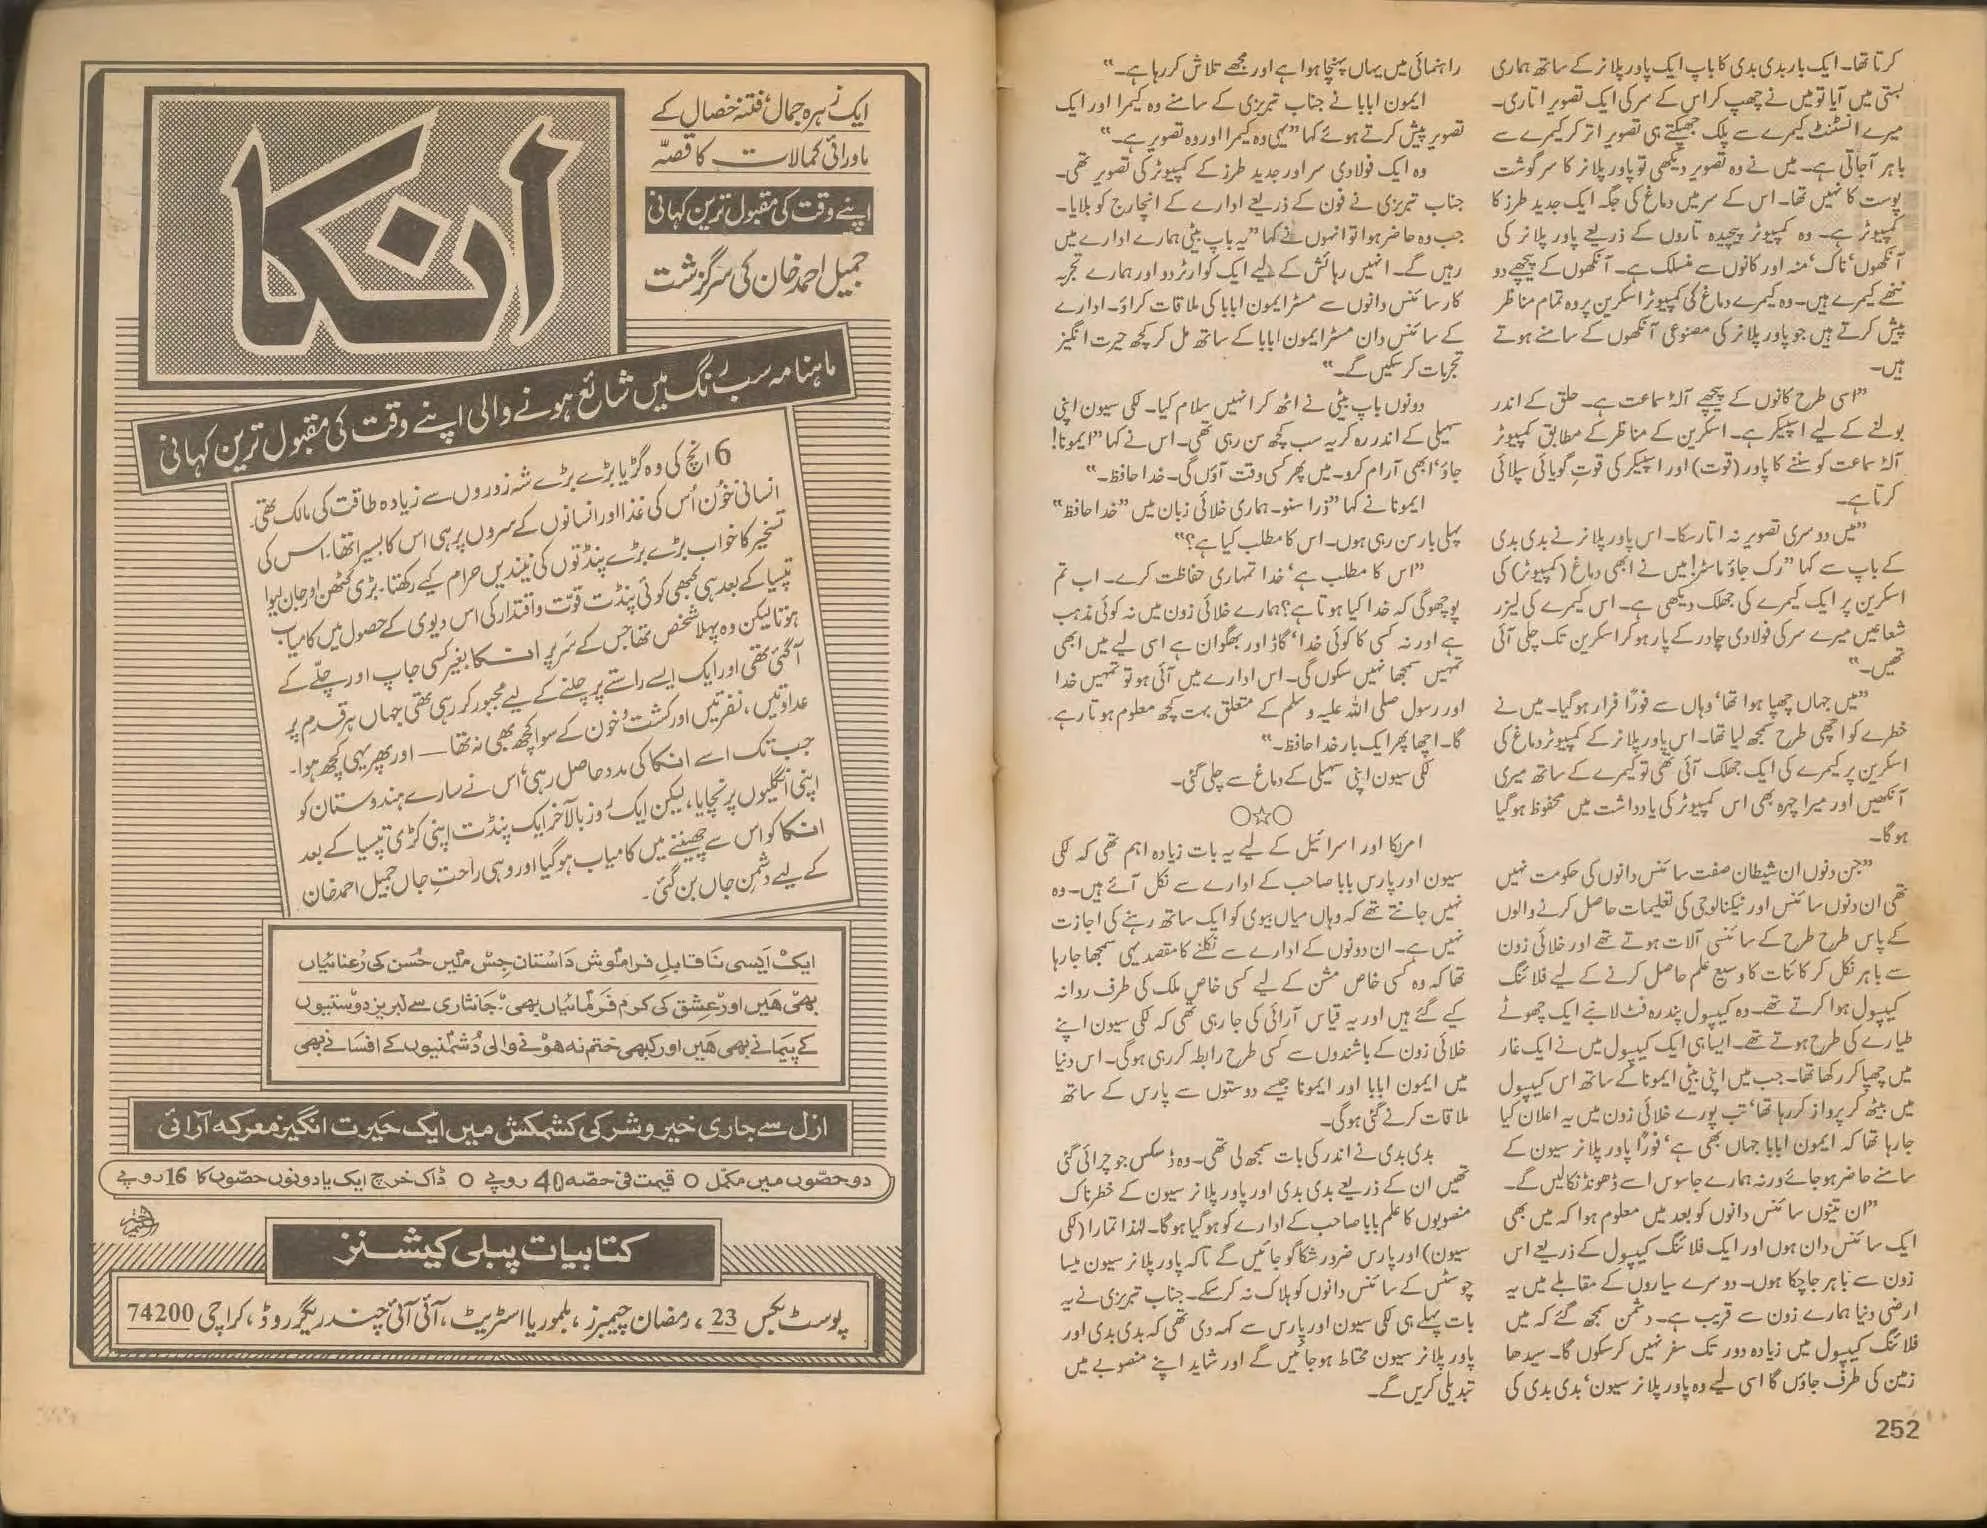 کرتا تھا۔ ایک بار بدی بدی کا باپ ایک پاور پلانر کے ساتھ ہماری
بستی میں آیا تو میں نے چھپ کر اس کے سر کی ایک تصویر اتاری۔
میرے انسٹنٹ کیمرے سے پلک جھپکتے ہی تصویر اتر کر کیمرے سے
باہر آجاتی ہے۔ میں نے وہ تصویر دیکھی تو پاور پلانر کا سر گوشت
پوست کا نہیں تھا۔ اس کے سر میں دماغ کی جگہ ایک جدید طرز کا
کمپیوٹر ہے۔ وہ کمپیوٹر پیچیدہ تاروں کے ذریعے پاور پلانر کی
آنکھوں، ناک، منہ اور کانوں سے منسلک ہے۔ آنکھوں کے پیچھے دو
ننھے کیمرے ہیں۔ وہ کیمرے دماغ کی کمپیوٹر اسکرین پر وہ تمام مناظر
پیش کرتے ہیں جو پاور پلانر کی مصنوعی آنکھوں کے سامنے ہوتے
ہیں۔
”اسی طرح کانوں کے پیچھے آلۂ سماعت ہے۔ حلق کے اندر
بولنے کے لیے اسپیکر ہے۔ اسکرین کے مناظر کے مطابق کمپیوٹر
آلۂ سماعت کو سننے کا پاور (قوت) اور اسپیکر کی قوتِ گویائی سپلائی
کرتا ہے۔
”میں دوسری تصویر نہ اتار سکا۔ اس پاور پلانر نے بدی بدی
کے باپ سے کہا ”رک جاؤ ماسٹر! میں نے ابھی دماغ (کمپیوٹر) کی
اسکرین پر ایک کیمرے کی جھلک دیکھی ہے۔ اس کیمرے کی لیزر
شعاعیں میرے سر کی فولادی چادر کے پار ہو کر اسکرین تک چلی آئی
تھیں۔“
”میں جہاں چھپا ہوا تھا، وہاں سے فوراً فرار ہوگیا۔ میں نے
خطرے کو اچھی طرح سمجھ لیا تھا۔ اس پاور پلانر کے کمپیوٹر دماغ کی
اسکرین پر کیمرے کی ایک جھلک آئی تھی تو کیمرے کے ساتھ میری
آنکھیں اور میرا چہرہ بھی اس کمپیوٹر کی یادداشت میں محفوظ ہوگیا
ہوگا۔
”جن دنوں ان شیطان صفت سائنس دانوں کی حکومت نہیں
تھی ان دنوں سائنس اور ٹیکنالوجی کی تعلیمات حاصل کرنے والوں
کے پاس طرح طرح کے سائنسی آلات ہوتے تھے اور خلائی زون
سے باہر نکل کر کائنات کا وسیع علم حاصل کرنے کے لیے فلائنگ
کیپسول ہوا کرتے تھے۔ وہ کیپسول پندرہ فٹ لانبے ایک چھوٹے
طیارے کی طرح ہوتے تھے۔ ایسا ہی ایک کیپسول میں نے ایک غار
میں چھپا کر رکھا تھا۔ جب میں اپنی بیٹی ایمونا کے ساتھ اس کیپسول
میں بیٹھ کر پرواز کر رہا تھا، تب پورے خلائی زون میں یہ اعلان کیا
جارہا تھا کہ ایمون ابابا جہاں بھی ہے، فوراً پاور پلانر سیون کے
سامنے حاضر ہوجائے ورنہ ہمارے جاسوس اسے ڈھونڈ نکالیں گے۔
”ان تینوں سائنس دانوں کو بعد میں معلوم ہوا کہ میں بھی
ایک سائنس دان ہوں اور ایک فلائنگ کیپسول کے ذریعے اس
زون سے باہر جاچکا ہوں۔ دوسرے سیاروں کے مقابلے میں یہ
ارضی دنیا ہمارے زون سے قریب ہے۔ دشمن سمجھ گئے کہ میں
فلائنگ کیپسول میں زیادہ دور تک سفر نہیں کرسکوں گا۔ سیدھا
زمین کی طرف جاؤں گا اسی لیے وہ پاور پلانر سیون، بدی بدی کی
252
راہنمائی میں یہاں پہنچا ہوا ہے اور مجھے تلاش کر رہا ہے۔“
ایمون ابابا نے جناب تبریزی کے سامنے وہ کیمرا اور ایک
تصویر پیش کرتے ہوئے کہا ”یہی وہ کیمرا اور وہ تصویر ہے۔“
وہ ایک فولادی سر اور جدید طرز کے کمپیوٹر کی تصویر تھی۔
جناب تبریزی نے فون کے ذریعے ادارے کے انچارج کو بلایا۔
جب وہ حاضر ہوا تو انہوں نے کہا ”یہ باپ بیٹی ہمارے ادارے میں
رہیں گے۔ انہیں رہائش کے لیے ایک کوارٹر دو اور ہمارے تجربہ
کار سائنس دانوں سے مسٹر ایمون ابابا کی ملاقات کراؤ۔ ادارے
کے سائنس دان مسٹر ایمون ابابا کے ساتھ مل کر کچھ حیرت انگیز
تجربات کر سکیں گے۔“
دونوں باپ بیٹی نے اٹھ کر انہیں سلام کیا۔ لکی سیون اپنی
سہیلی کے اندر رہ کر یہ سب کچھ سن رہی تھی۔ اس نے کہا ”ایمونا!
جاؤ، ابھی آرام کرو۔ میں پھر کسی وقت آؤں گی۔ خدا حافظ۔“
ایمونا نے کہا ”ذرا سنو۔ ہماری خلائی زبان میں ”خدا حافظ“
پہلی بار سن رہی ہوں۔ اس کا مطلب کیا ہے؟“
”اس کا مطلب ہے، خدا تمہاری حفاظت کرے۔ اب تم
پوچھو گی کہ خدا کیا ہوتا ہے؟ ہمارے خلائی زون میں نہ کوئی مذہب
ہے اور نہ کسی کا کوئی خدا، گاڈ اور بھگوان ہے اسی لیے میں ابھی
تمہیں سمجھا نہیں سکوں گی۔ اس ادارے میں آئی ہو تو تمہیں خدا
اور رسول صلی اللہ علیہ وسلم کے متعلق بہت کچھ معلوم ہوتا رہے
گا۔ اچھا پھر ایک بار خدا حافظ۔“
لکی سیون اپنی سہیلی کے دماغ سے چلی گئی۔
○☆○
امریکا اور اسرائیل کے لیے یہ بات زیادہ اہم تھی کہ لکی
سیون اور پارس بابا صاحب کے ادارے سے نکل آئے ہیں۔ وہ
نہیں جانتے تھے کہ وہاں میاں بیوی کو ایک ساتھ رہنے کی اجازت
نہیں ہے۔ ان دونوں کے ادارے سے نکلنے کا مقصد یہی سمجھا جارہا
تھا کہ وہ کسی خاص مشن کے لیے کسی خاص ملک کی طرف روانہ
کیے گئے ہیں اور یہ قیاس آرائی کی جارہی تھی کہ لکی سیون اپنے
خلائی زون کے باشندوں سے کسی طرح رابطہ کر رہی ہوگی۔ اس دنیا
میں ایمون ابابا اور ایمونا جیسے دوستوں سے پارس کے ساتھ
ملاقات کرنے گئی ہوگی۔
بدی بدی نے اندر کی بات سمجھ لی تھی۔ وہ ڈسکس جو چرائی گئی
تھیں ان کے ذریعے بدی بدی اور پاور پلانر سیون کے خطرناک
منصوبوں کا علم بابا صاحب کے ادارے کو ہوگیا ہوگا۔ لہٰذا تمارا (لکی
سیون) اور پارس ضرور شکاگو جائیں گے تاکہ پاور پلانر سیون میسا
چوسٹس کے سائنس دانوں کو ہلاک نہ کرسکے۔ جناب تبریزی نے یہ
بات پہلے ہی لکی سیون اور پارس سے کہہ دی تھی کہ بدی بدی اور
پاور پلانر سیون محتاط ہوجائیں گے اور شاید اپنے منصوبے میں
تبدیلی کریں گے۔
ایک زہرہ جمال، فتنہ خصال کے
ماورائی کمالات کا قصّہ
اپنے وقت کی مقبول ترین کہانی
جمیل احمد خان کی سرگزشت
انکا
ماہنامہ سب رنگ میں شائع ہونے والی اپنے وقت کی مقبول ترین کہانی
6 انچ کی وہ گڑیا بڑے بڑے شہ زوروں سے زیادہ طاقت کی مالک تھی۔
انسانی خُون اُس کی غذا اور انسانوں کے سروں پر ہی اس کا بسیرا تھا۔ اس کی
تسخیر کا خواب بڑے بڑے پنڈتوں کی نیندیں حرام کیے رکھتا۔ بڑی کٹھن اور جان لیوا
تپسیا کے بعد ہی کبھی کوئی پنڈت قوّت و اقتدار کی اس دیوی کے حصول میں کامیاب
ہوتا لیکن وہ پہلا شخص تھا جس کے سَر پر انکا بغیر کسی جاپ اور چلّے کے
آگئی تھی اور ایک ایسے راستے پر چلنے کے لیے مجبور کر رہی تھی جہاں ہر قدم پر
عداوتیں، نفرتیں اور کشت و خون کے سوا کچھ بھی نہ تھا — اور پھر یہی کچھ ہوا۔
جب تک اسے انکا کی مدد حاصل رہی، اس نے سارے ہندوستان کو
اپنی انگلیوں پر نچایا، لیکن ایک روز بالآخر ایک پنڈت اپنی کڑی تپسیا کے بعد
انکا کو اس سے چھیننے میں کامیاب ہوگیا اور وہی راحتِ جاں جمیل احمد خان
کے لیے دشمنِ جاں بن گئی۔
ایک ایسی ناقابلِ فراموش داستان جس میں حُسن کی رعنائیاں
بھی ہیں اور عِشق کی کرم فرمائیاں بھی۔ جانثاری سے لبریز دوستیوں
کے پیمانے بھی ہیں اور کبھی ختم نہ ہونے والی دُشمنیوں کے افسانے بھی
ازل سے جاری خیر و شر کی کشمکش میں ایک حیرت انگیز معرکہ آرائی
دو حصّوں میں مکمّل ○ قیمت فی حصّہ 40 روپے ○ ڈاک خرچ ایک یا دونوں حصّوں کا 16 روپے
کتابیات پبلی کیشنز
پوسٹ بکس 23، رمضان چیمبرز، بلموریا اسٹریٹ، آئی آئی چندریگر روڈ، کراچی 74200